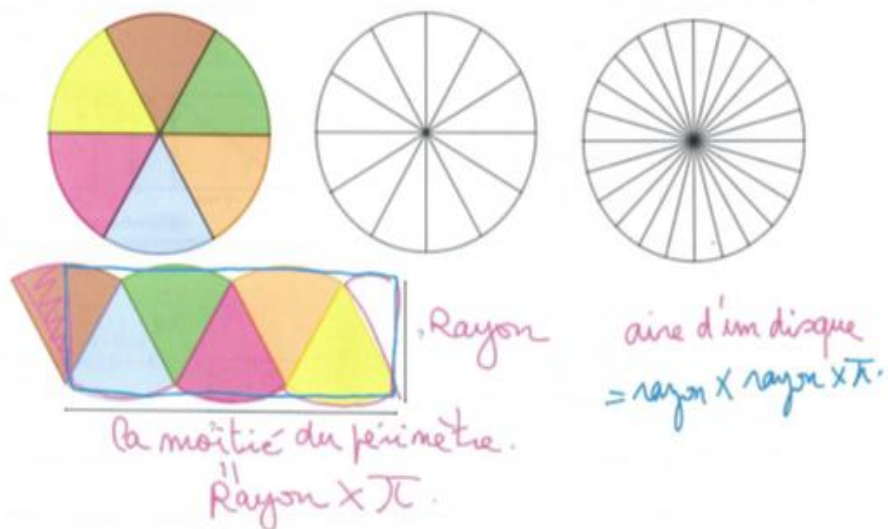 Rayon
aire d'un disque
= rayon × rayon × π.
la moitié du périmètre.
=
Rayon × π.